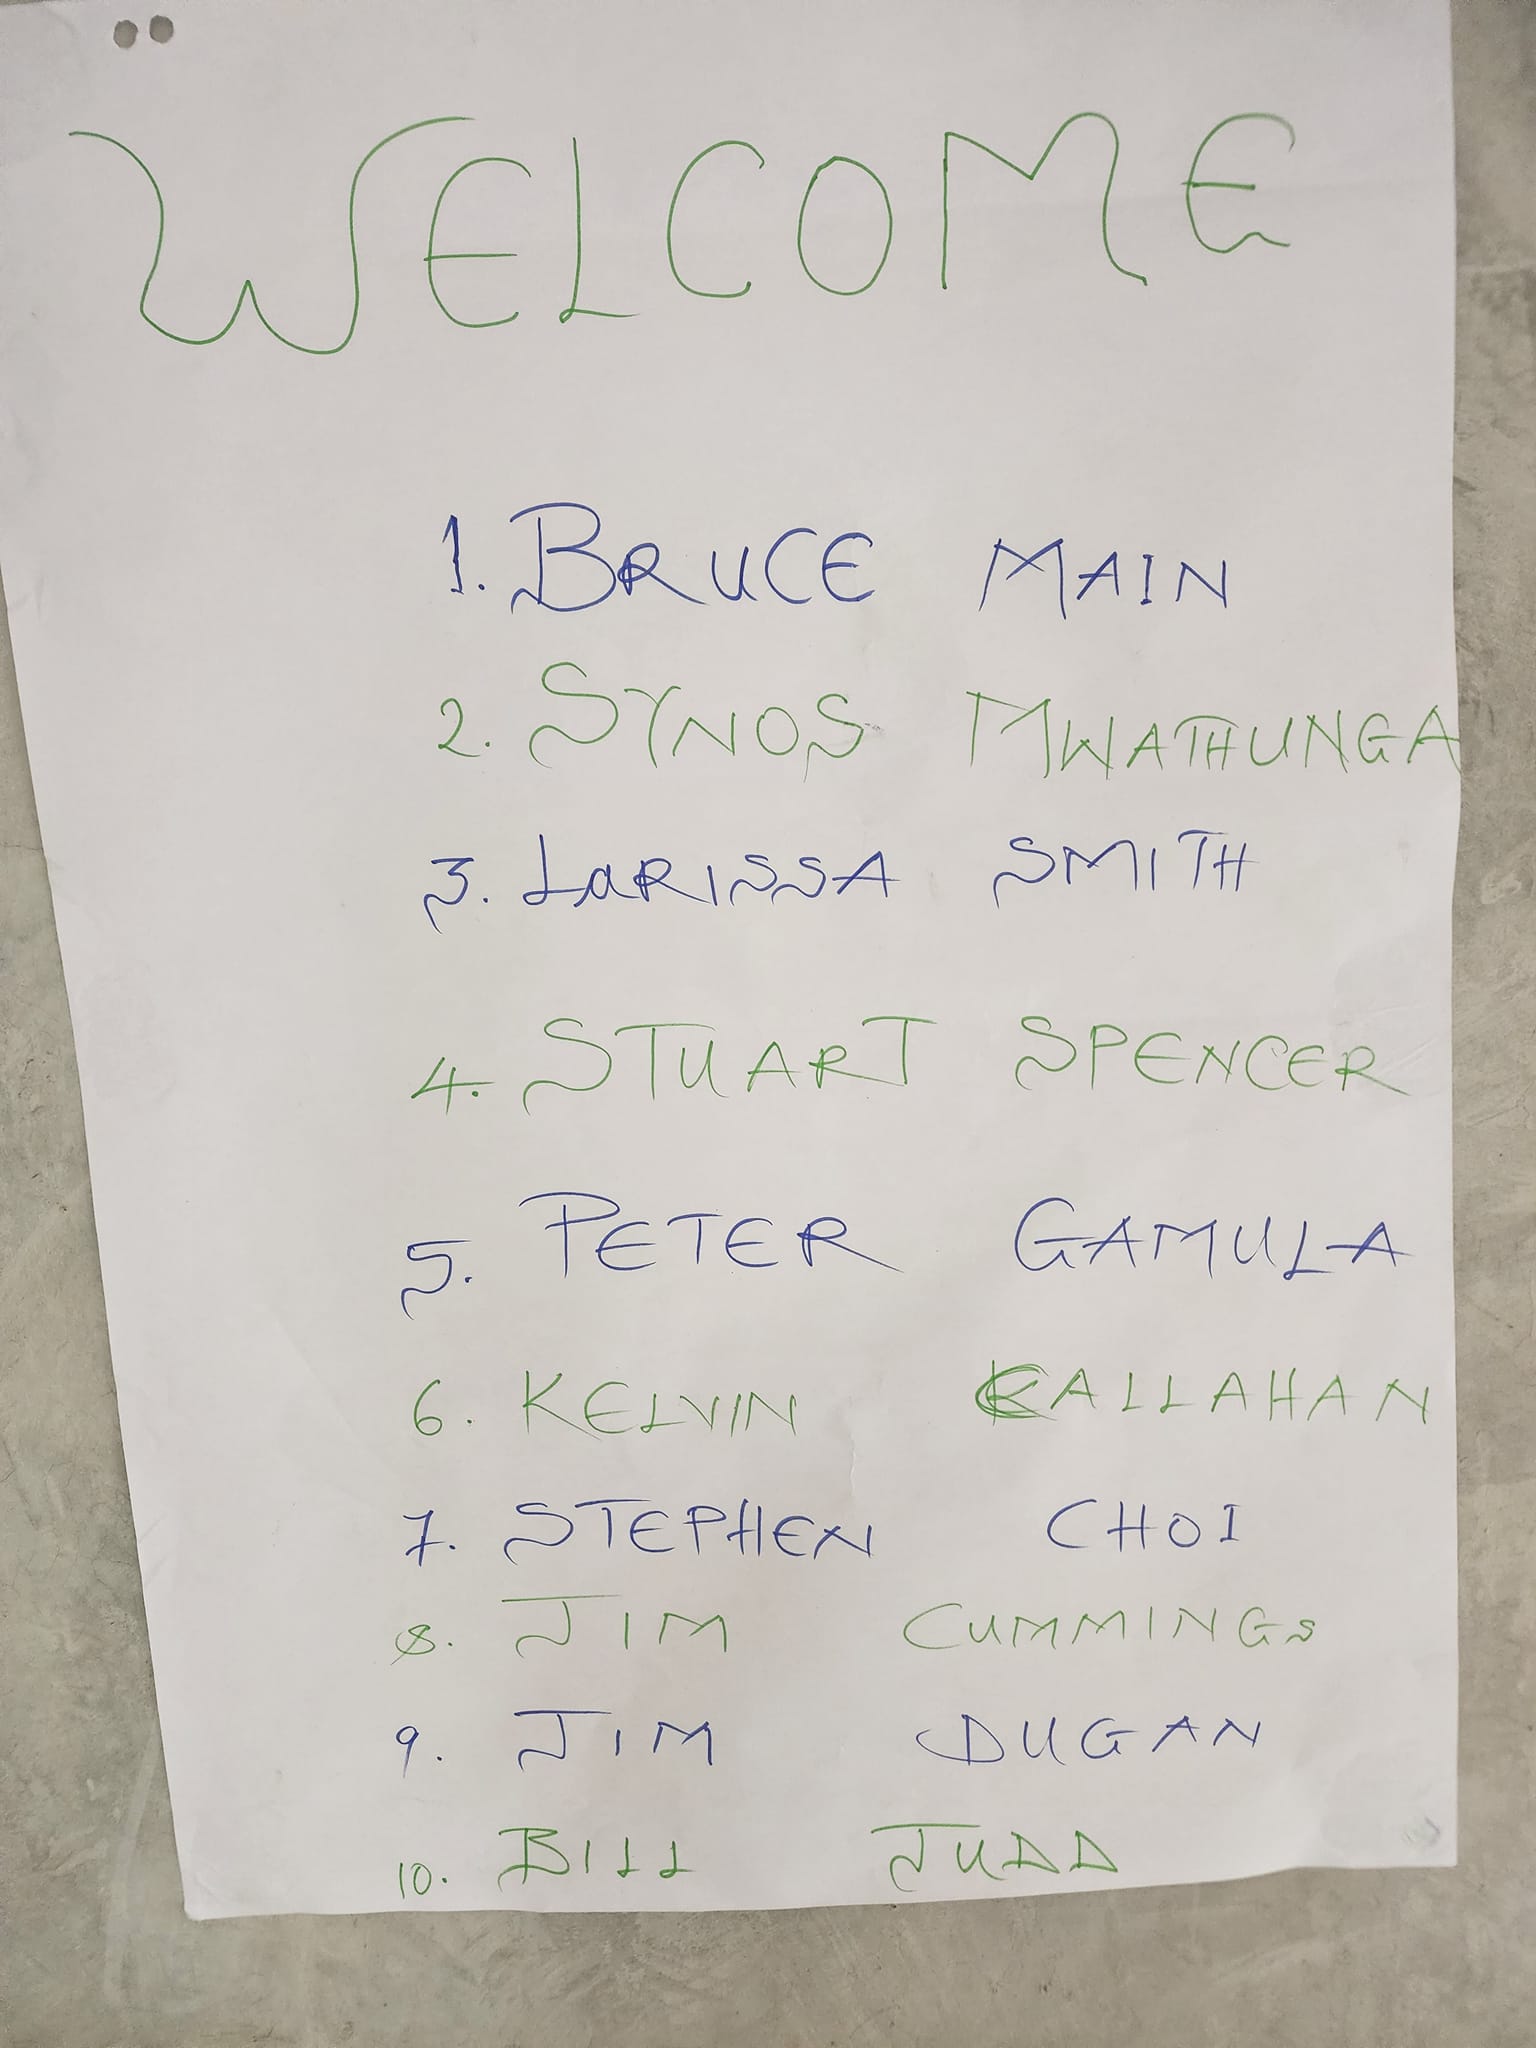 WELCOME
1. BRUCE MAIN
2. SYNOS MWATHUNGA
3. LaRISSA SMITH
4. STUART SPENCER
5. PETER GAMULA
6. KELVIN CALLAHAN
7. STEPHEN CHOI
8. JIM CUMMINGS
9. JIM DUGAN
10. BILL JUDD